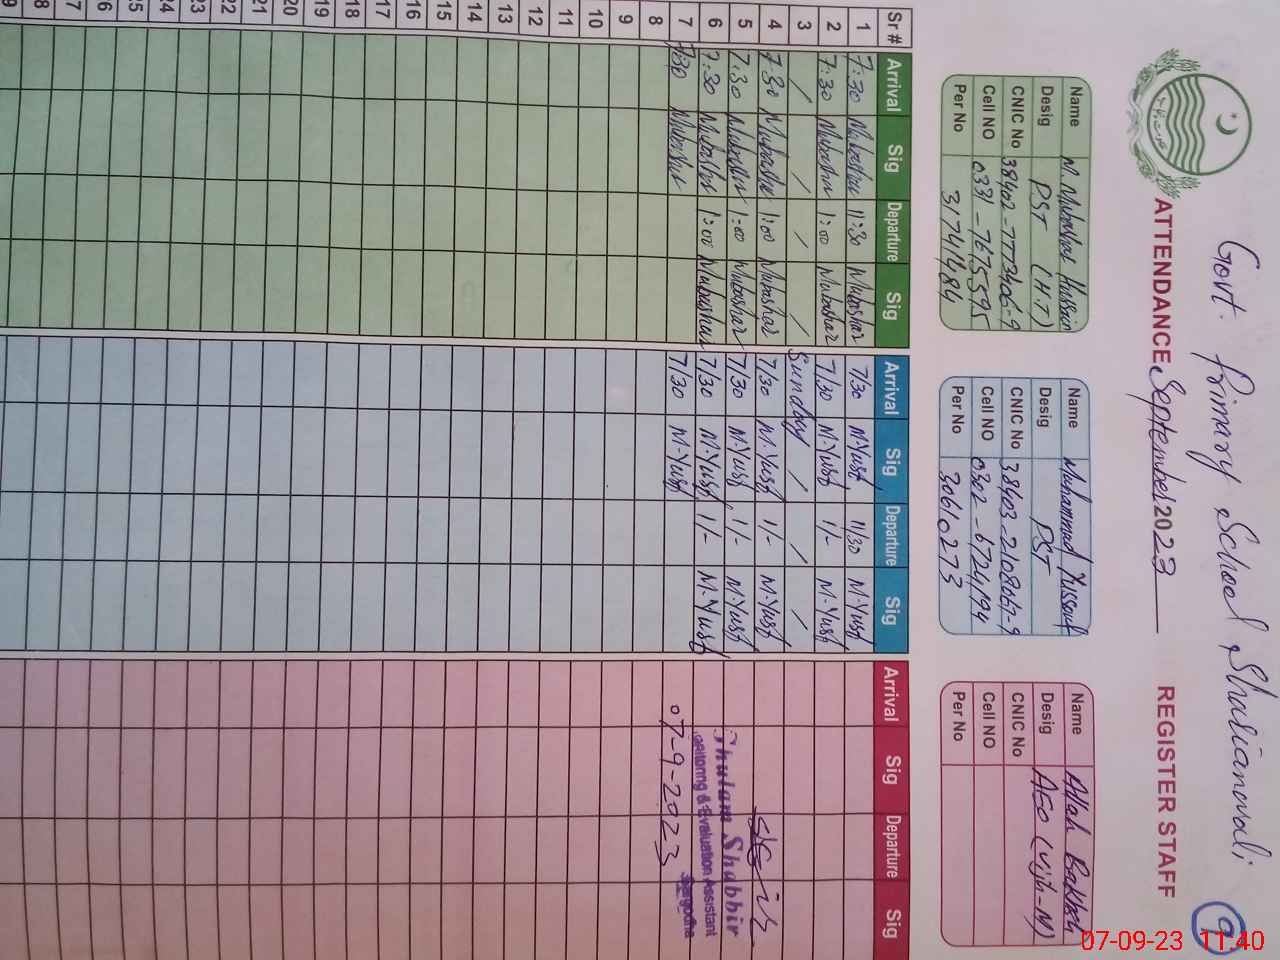 Govt. Primary School Shasianwali
9
ATTENDANCE September 2023 REGISTER STAFF
Name M. Mubashar Hussain
Desig PST (H.T)
CNIC No 38402-7773406-9
Cell NO 0331-7675595
Per No 31741484
Name Muhammad Yussouf
Desig PST
CNIC No 38403-2108067-9
Cell NO 0302-6724194
Per No 30610273
Name Allah Bakhsh
Desig AEO
CNIC No
Cell NO
Per No
Sr # Arrival Sig Departure Sig Arrival Sig Departure Sig Arrival Sig Departure Sig
1 7:30 Mubashar 11:30 Mubashar 7/30 M.Yusf 11/30 M.Yusf
2 7:30 Mubashar 1:00 Mubashar 7/30 M.Yusf 1/- M.Yusf
3 / / / / Sunday / / /
4 7:30 Mubashar 1:00 Mubashar 7/30 M.Yusf 1/- M.Yusf
5 7:30 Mubashar 1:00 Mubashar 7/30 M.Yusf 1/- M.Yusf
6 7:30 Mubashar 1:00 Mubashar 7/30 M.Yusf 1/- M.Yusf
7 7:30 Mubashar 7/30 M.Yusf
Ghulam Shabbir
Monitoring & Evaluation Assistant
Sargodha
07-9-2023
8
9
10
11
12
13
14
15
16
17
18
19
20
21
22
23
24
25
26
27
28
29
07-09-23 11:40